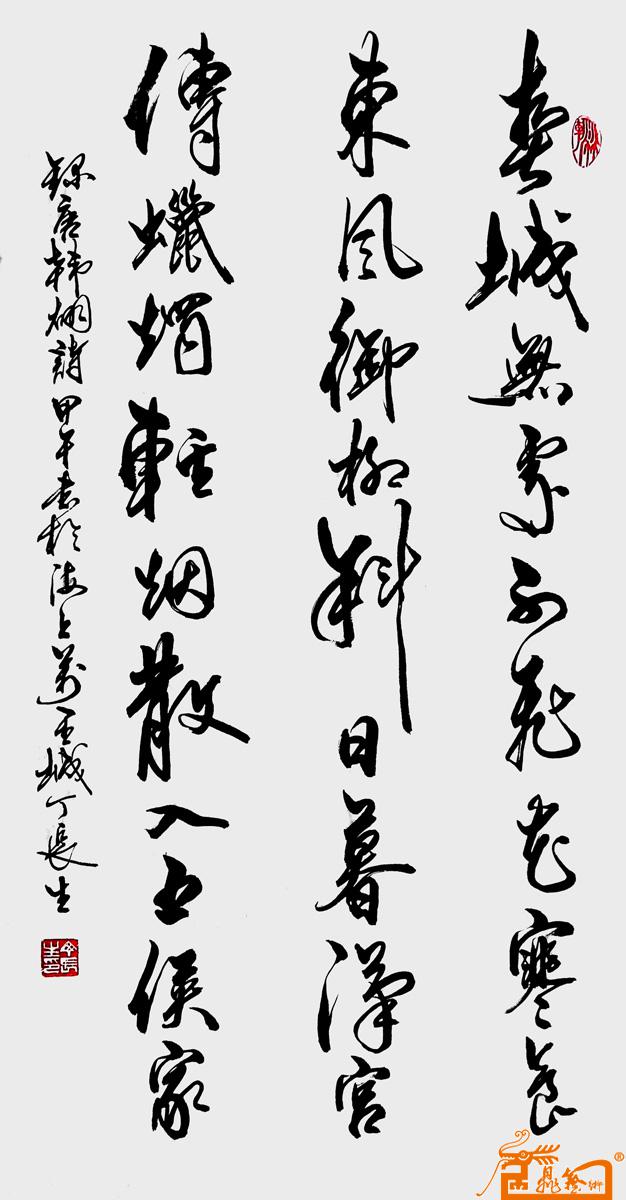 春城無處不飛花寒食
東風御柳斜日暮漢宮
傳蠟燭輕烟散入五侯家
錄唐韓翃詩甲午書於海上城丁長生